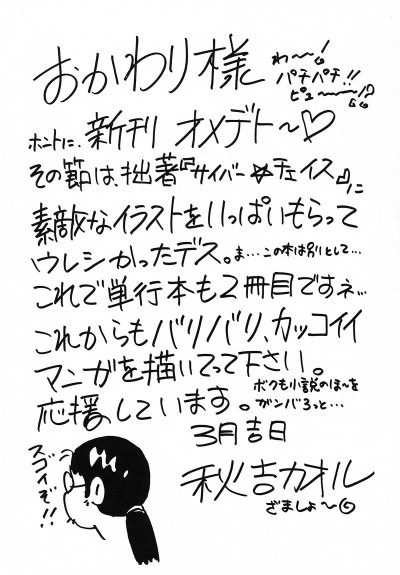 おかわり様
わ～!
パチパチ!!
ピュ～～～!?
ホントに、新刊 オメデト～♡
その節は、拙著『サイバー☆チェイス』に
素敵なイラストをいっぱいもらって
ウレシかったデス。ま…この本は別として…
これで単行本も2冊目ですネ…
これからもバリバリ、カッコイイ
マンガを描いてって下さい。
応援しています。
ボクも小説のほ～を
ガンバろっと…
3月吉日
秋吉カオル
ざましょ～
スゴイぞ!!